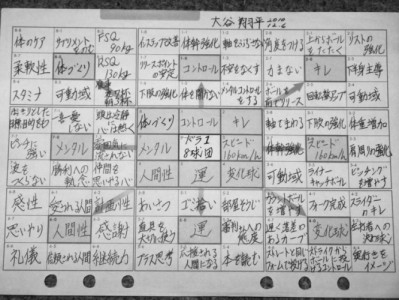 大谷 翔平
体のケア サプリメントをのむ FSQ 90kg インステップ改善 体幹強化 軸をぶらさない 角度をつける 上からボールをたたく リストの強化
柔軟性 体づくり RSQ 130kg リリースポイントの安定 コントロール 不安をなくす 力まない キレ 下半身主導
スタミナ 可動域 下肢の強化 体を開かない メンタルコントロールをする ボールを前でリリース 回転数アップ 可動域
はっきりとした目標、目的をもつ 一喜一憂しない 頭は冷静に心は熱く 体づくり コントロール キレ 軸でまわる 下肢の強化 体重増加
ピンチに強い メンタル 雰囲気に流されない メンタル ドラ1 8球団 スピード 160km/h 体幹強化 スピード 160km/h 肩周りの強化
波をつくらない 勝利への執念 仲間を思いやる心 人間性 運 変化球 可動域 ライナーキャッチボール ピッチングを増やす
感性 愛される人間 計画性 あいさつ ゴミ拾い 部屋そうじ カウントボールを増やす フォーク完成 スライダーのキレ
思いやり 人間性 感謝 道具を大切に使う 運 審判さんへの態度 遅く落差のあるカーブ 変化球 左打者への決め球
礼儀 信頼される人間 継続力 プラス思考 応援される人間になる 本を読む ストレートと同じフォームで投げる ストライクからボールに投げるコントロール 奥行きをイメージ